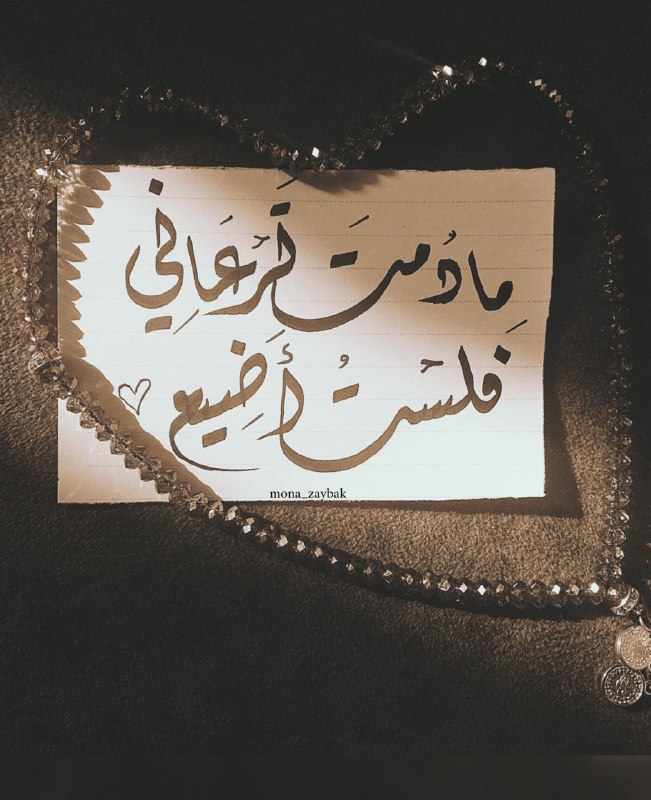 مادُمتَ تَرْعَاني
فلسْتُ أَضِيع
mona_zaybak